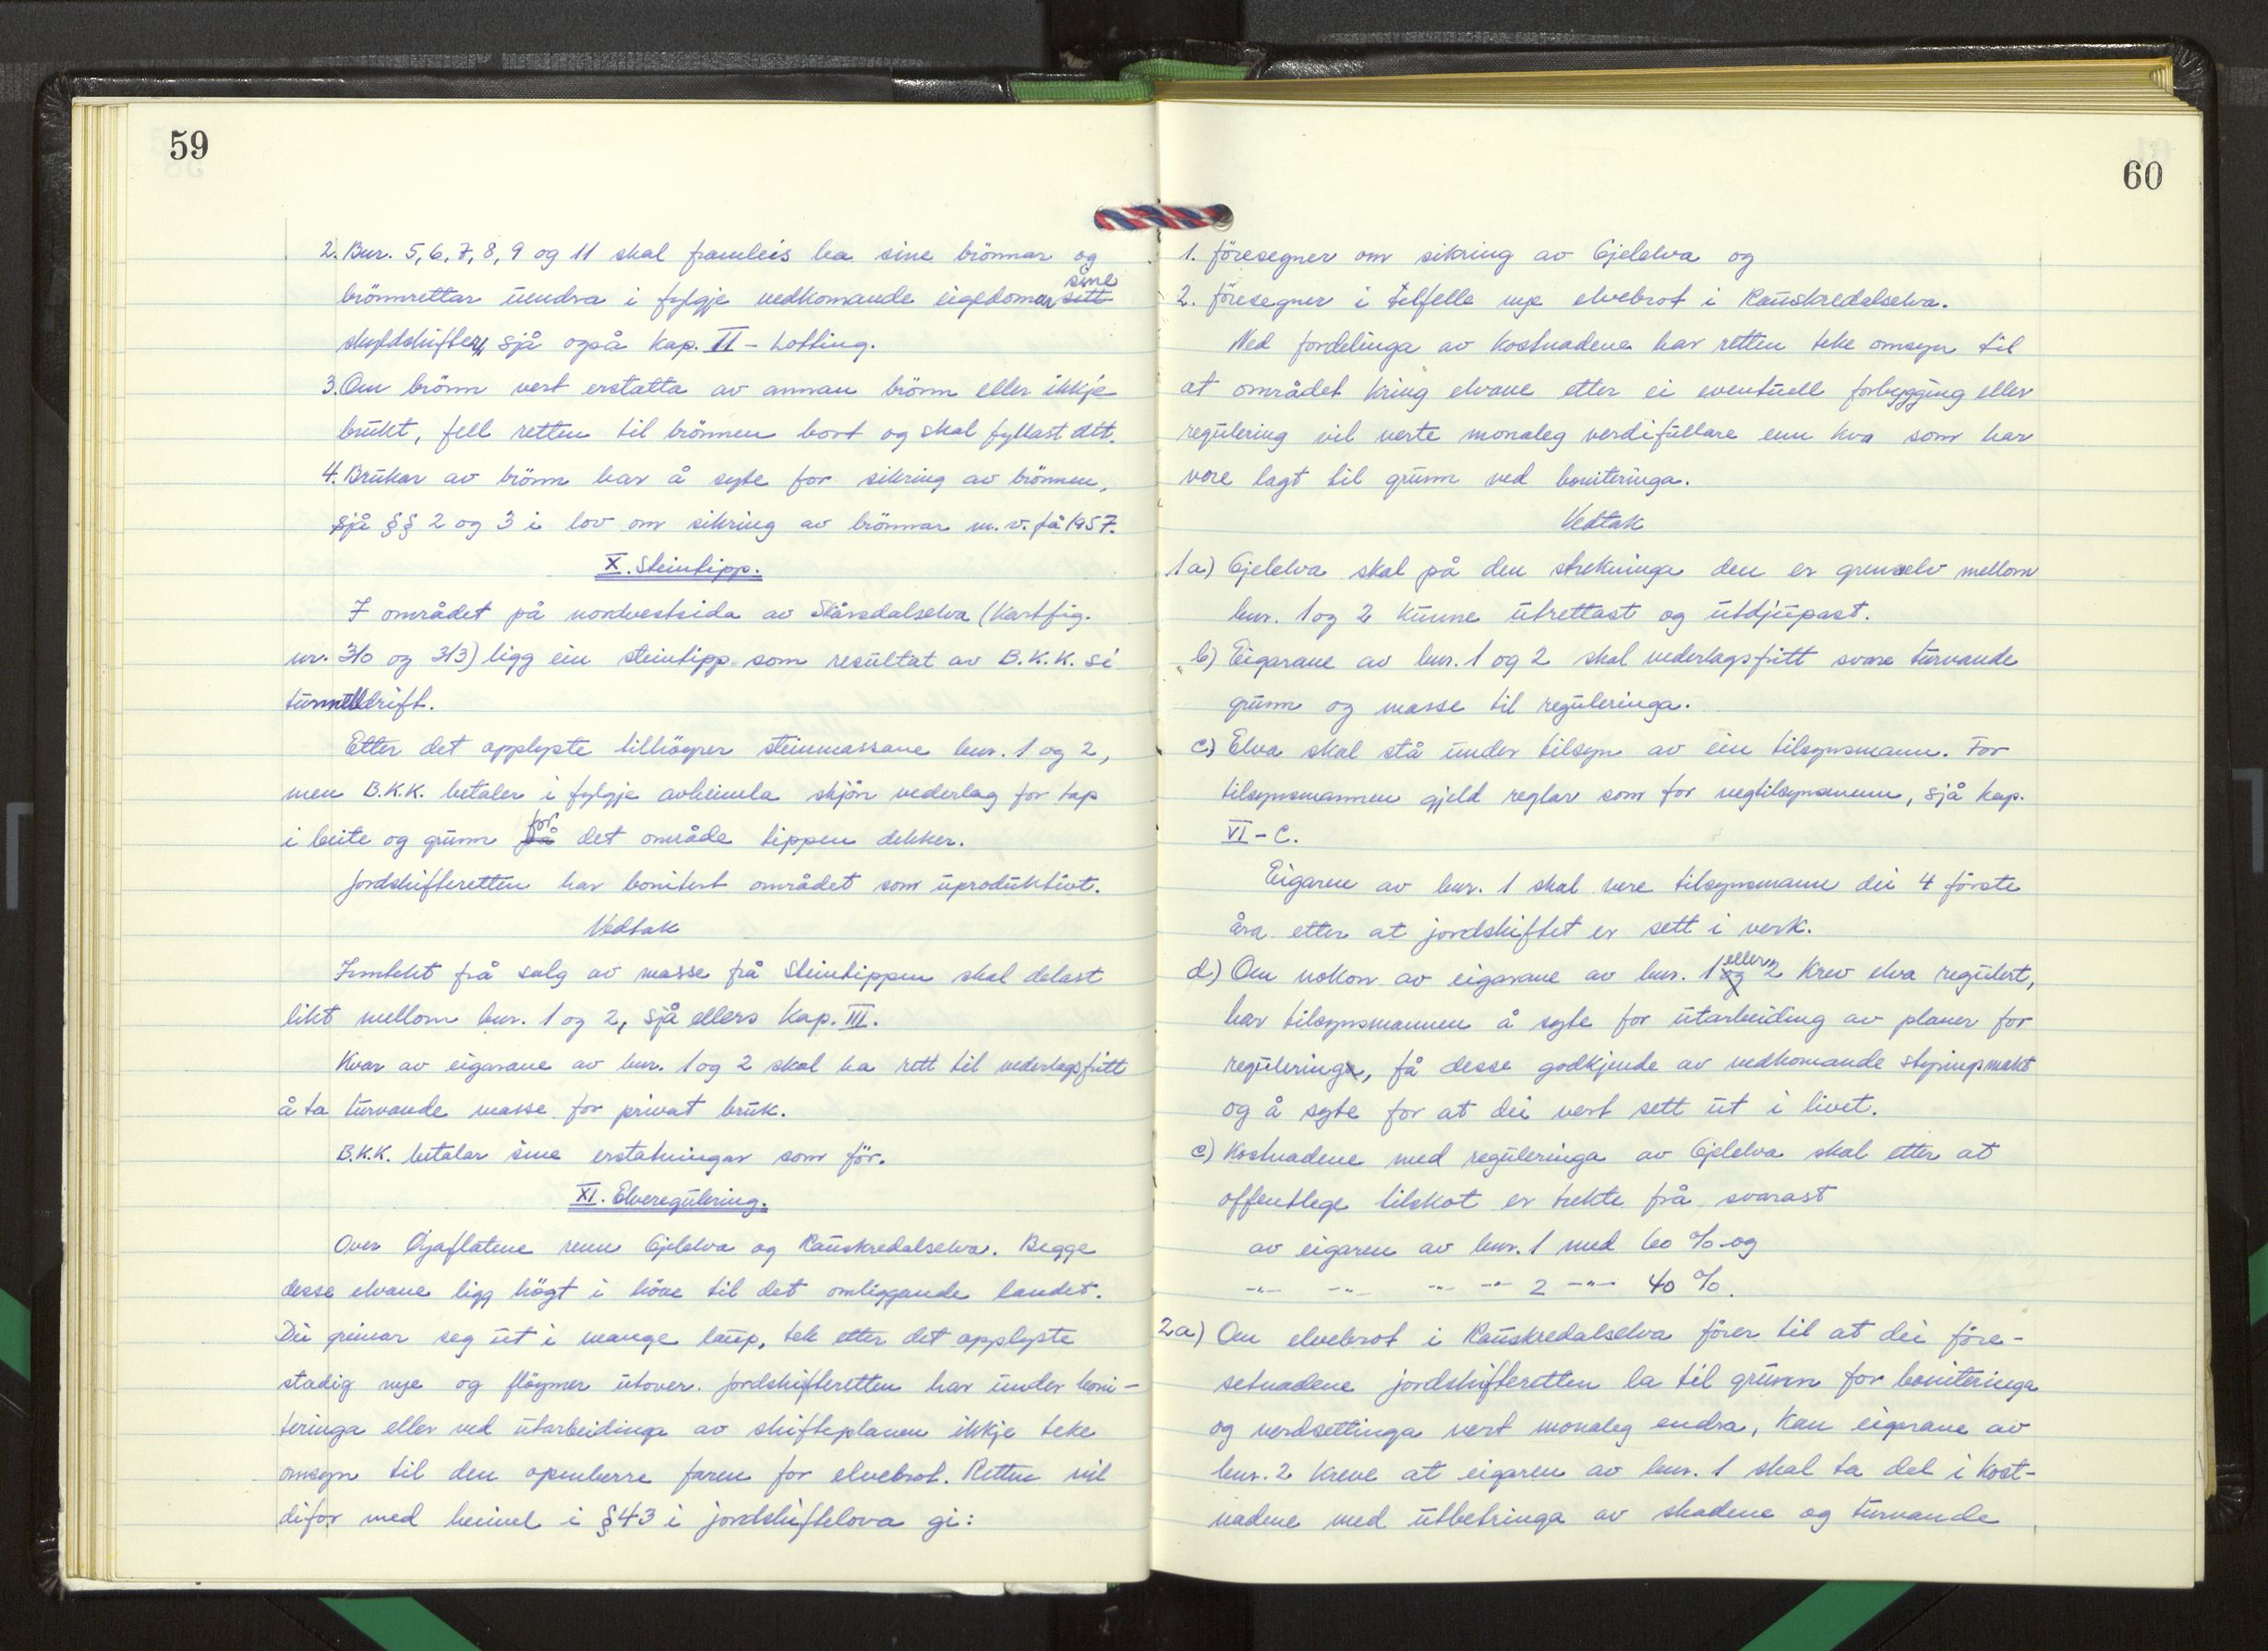 59
2. Bnr. 5, 6, 7, 8, 9 og 11 skal framleis ha sine brönnar og
brönnrettar uendra i fylgje vedkomande eigedomar sett sine
skyldskifter, sjå også kap. II - Lotting.
3. Om brönn vert erstatta av annan brönn eller ikkje
brukt, fell retten til brönnen bort og skal fyllast att.
4. Brukar av brönn har å syte for sikring av brönnen,
sjå §§ 2 og 3 i lov om sikring av brönnar m.v. frå 1957.
X. Steintipp.
I området på nordvestsida av Skårsdalselva (Kartfig.
nr. 310 og 313) ligg ein steintipp som resultat av B.K.K. si
tunnelldrift.
Etter det opplyste tilhöyrer steinmassane bnr. 1 og 2,
men B.K.K. betaler i fylgje avheimla skjön vederlag for tap
i beite og grunn på for det område tippen dekker.
Jordskifteretten har bonitert området som uproduktivt.
Vedtak
Inntekt frå salg av masse frå steintippen skal delast
likt mellom bnr. 1 og 2, sjå ellers kap. III.
Kvar av eigarane av bnr. 1 og 2 skal ha rett til vederlagsfritt
å ta turvande masse for privat bruk.
B.K.K. betalar sine erstatningar som för.
XI. Elveregulering.
Over Öyaflatene renn Gjelelva og Rauskredalselva. Begge
desse elvane ligg högt i höve til det omliggande landet.
Dei greinar seg ut i mange laup, tek etter det opplyste
stadig nye og flöymer utover. Jordskifteretten har under boni-
teringa eller ved utarbeidinga av skifteplanen ikkje teke
omsyn til den openberre faren for elvebrot. Retten vil
difor med heimel i §43 i jordskiftelova gi:
60
1. föresegner om sikring av Gjelelva og
2. föresegner i tilfelle nye elvebrot i Rauskredalselva.
Ved fordelinga av kostnadene har retten teke omsyn til
at området kring elvane etter ei eventuell forbygging eller
regulering vil verte monaleg verdifullare enn kva som har
vore lagt til grunn ved boniteringa.
Vedtak
1a) Gjelelva skal på den strekninga den er grenseelv mellom
bnr. 1 og 2 kunne utrettast og utdjupast.
b) Eigarane av bnr. 1 og 2 skal vederlagsfritt svare turvande
grunn og masse til reguleringa.
c) Elva skal stå under tilsyn av ein tilsynsmann. For
tilsynsmannen gjeld reglar som for vegtilsynsmenn, sjå kap.
VI - C.
Eigaren av bnr. 1 skal vere tilsynsmann dei 4 förste
åra etter at jordskiftet er sett i verk.
d) Om nokon av eigarane av bnr. 1 og eller 2 krev elva regulert,
har tilsynsmannen å syte for utarbeiding av planer for
regulering, få desse godkjende av vedkomande styringsmakt
og å syte for at dei vert sett ut i livet.
e) Kostnadene med reguleringa av Gjelelva skal etter at
offentlege tilskot er trekte frå svarast
av eigaren av bnr. 1 med 60 % og
-"- -"- -"- -"- 2 -"- 40 %.
2a) Om elvebrot i Rauskredalselva förer til at dei före-
setnadene jordskifteretten la til grunn for boniteringa
og verdsettinga vert monaleg endra, kan eigarane av
bnr. 2 kreve at eigaren av bnr. 1 skal ta del i kost-
nadene med utbetringa av skadene og turvande